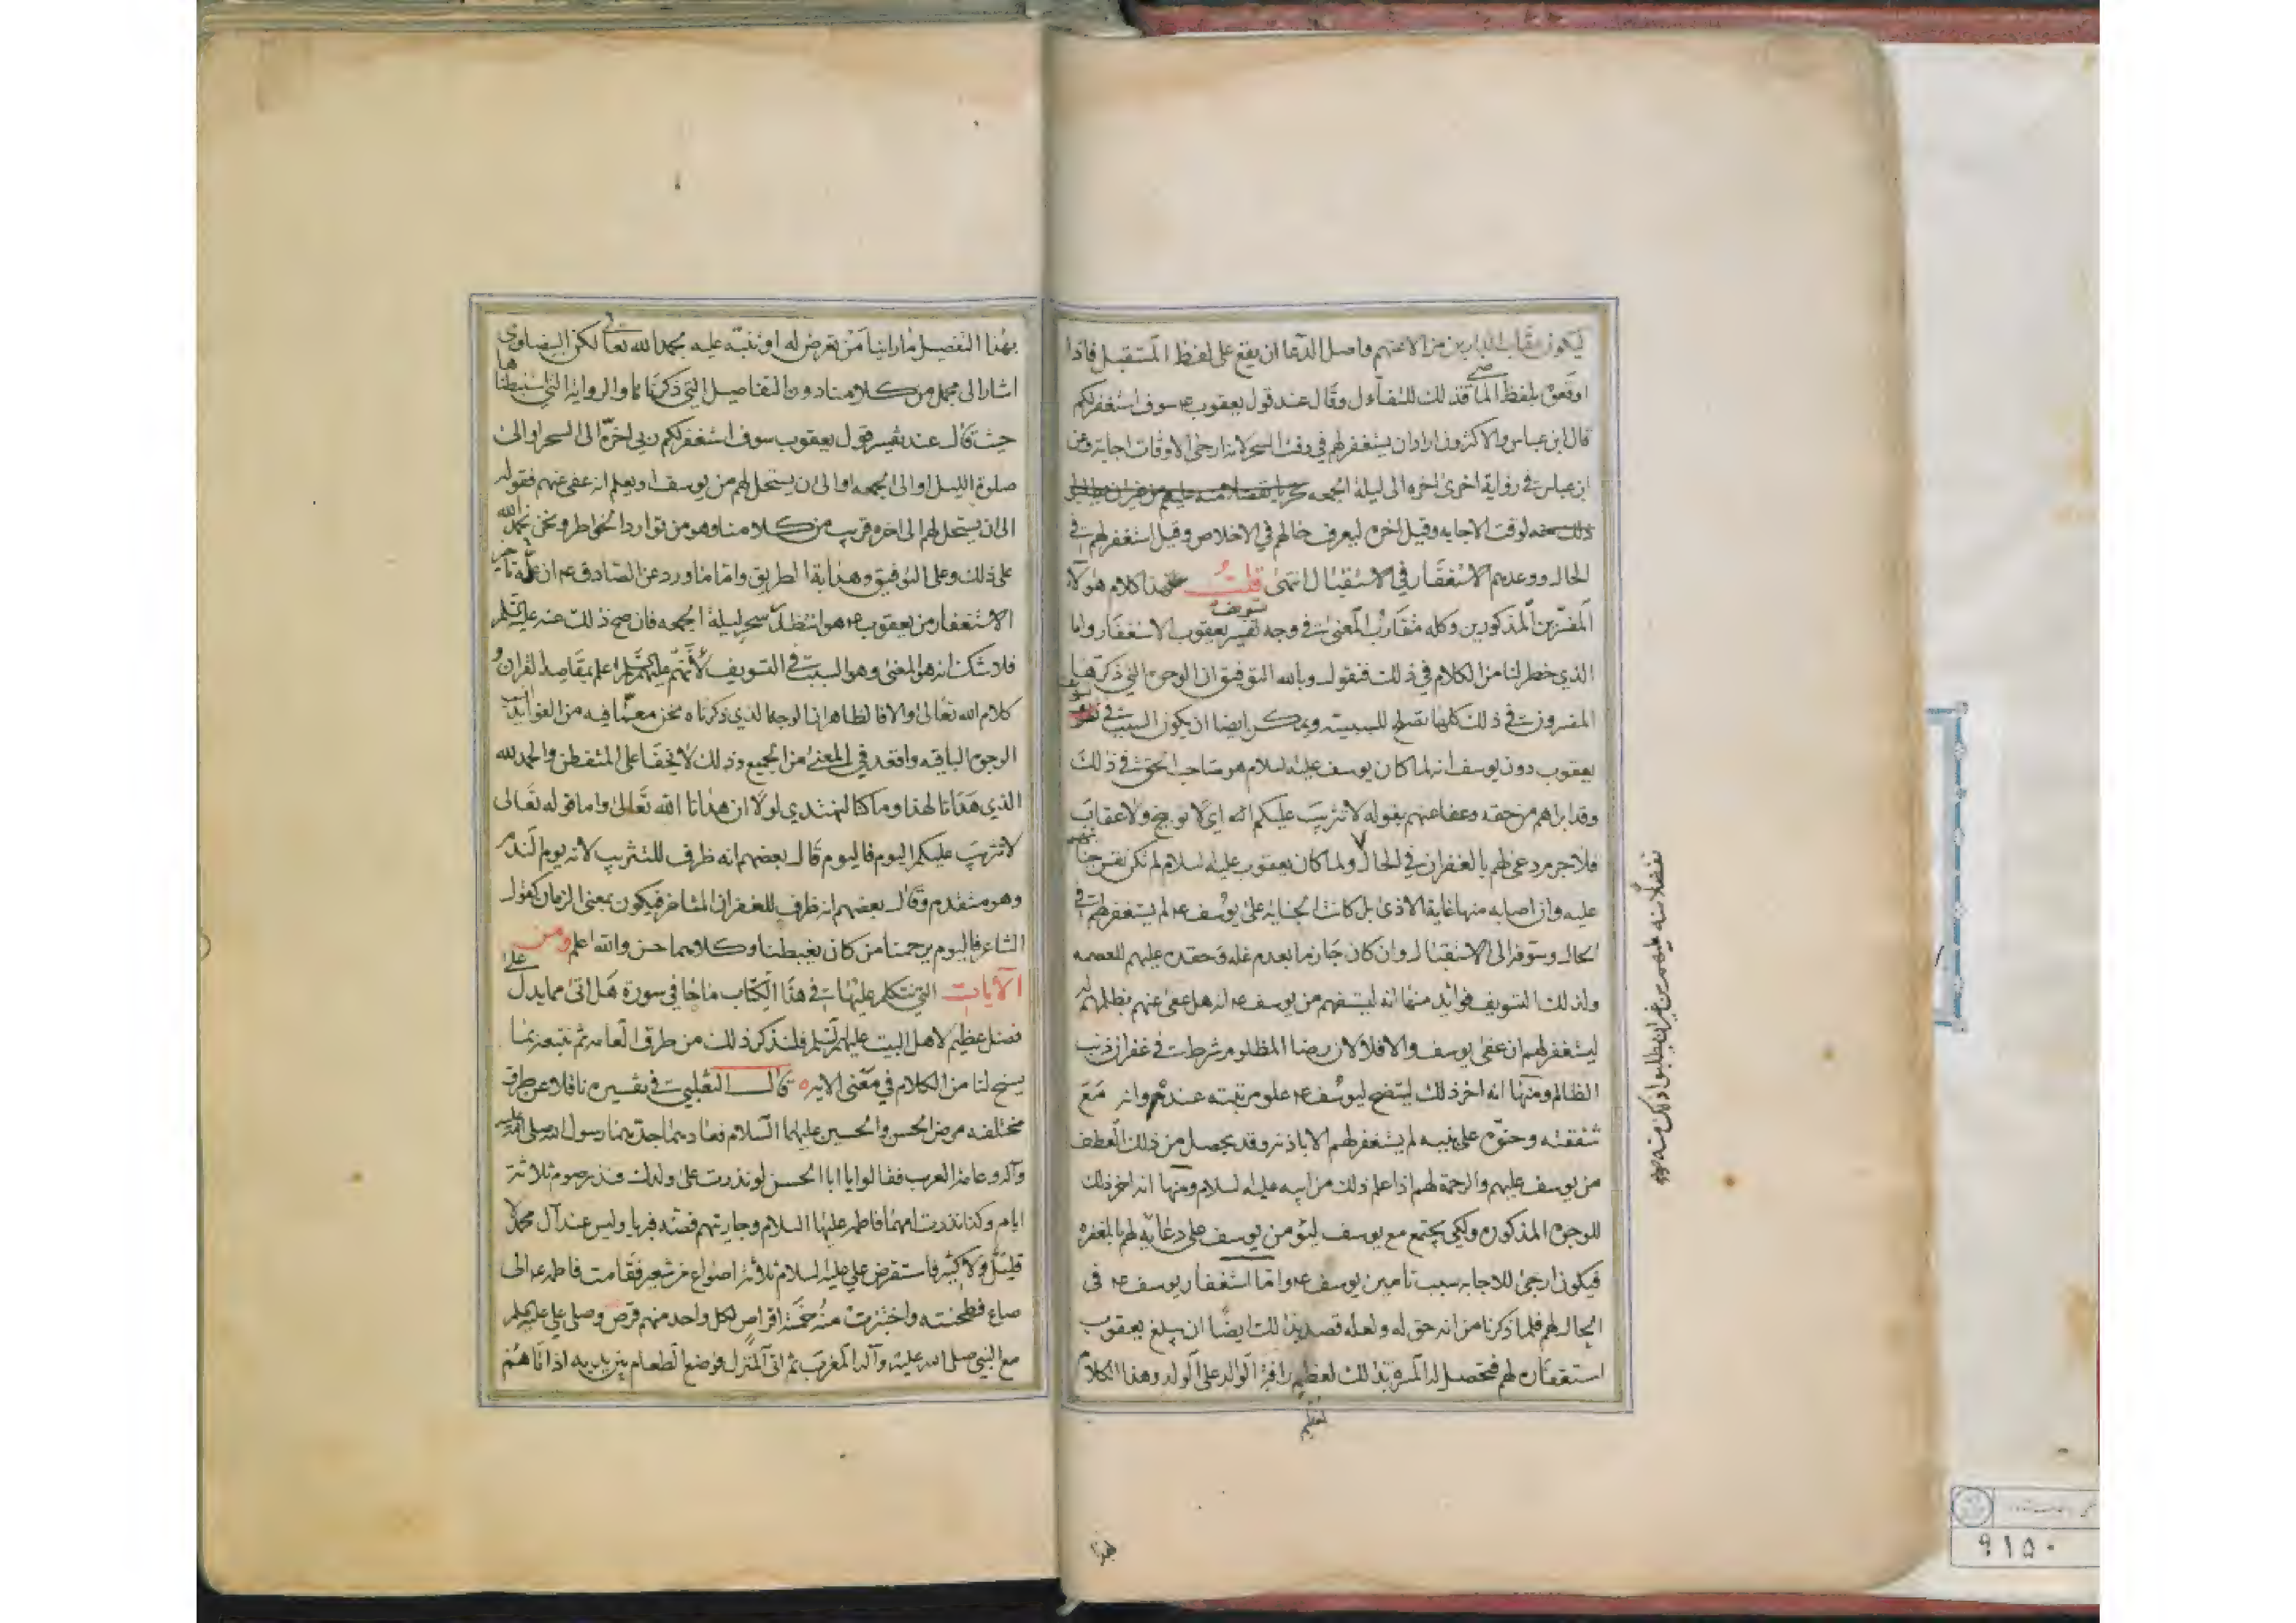 ليكون عقاب البارين من الاعنهم واصل الدعا ان يقع على لفظ المستقبل فاذا
اوقعوه بلفظ الماضي فذلك للتفاءل وقال عند قول يعقوب ع سوف استغفر لكم
قال ابن عباس والاكثرون اراد ان يستغفر لهم في وقت السحر لانه ارجى الاوقات اجابة وعن
ابن عباس في رواية اخرى اخره الى ليلة الجمعه تحريا
لوقت الاجابه وقيل اخره ليعرف حالهم في الاخلاص وقيل استغفر لهم في
الحال ووعدهم الاستغفار في الاستقبال انتهى قلت هذا كلام هولاء
المفسرين المذكورين وكله متقارب المعنى في وجه تسويف يعقوب الاستغفار واما
الذي خطر لنا من الكلام في ذلك فنقول وبالله التوفيق ان الوجوه التي ذكرها
المفسرون في ذلك كلها تصلح للسببيته ويمكن ايضا ان يكون السبب في تسويف
يعقوب دون يوسف انه لما كان يوسف عليه السلام هو صاحب الحق في ذلك
وقد ابراهم من حقه وعفا عنهم بقوله لا تثريب عليكم اه اي لا توبيخ ولا عقاب
فلا جرم دعى لهم بالغفران في الحال ولما كان يعقوب عليه السلام لم تكن نفس جنايتهم
عليه وان اصابه منها غاية الاذى بل كانت الجنايه على يوسف ع لم يستغفر لهم في
الحال وسوفه الى الاستقبال وان كان جازما بعدم غله وحقده عليهم للعصمه
ولذلك التسويف فوائد منها انه ليستفهم من يوسف ع انه هل عفى عنهم بظلمهم له
ليستغفر لهم ان عفى يوسف والا فلا لان رضا المظلوم شرط في غفران ذنب
الظالم ومنها انه اخر ذلك ليتضح ليوسف ع علو مرتبته عندهم وانه مع
شفقته وحنوه على بنيه لم يستغفر لهم الا باذنه وقد يحصل من ذلك العطف
من يوسف عليهم والرحمة لهم اذا علم ذلك من ابيه عليه السلام ومنها انه اخر ذلك
للوجوه المذكوره ولكي يجتمع مع يوسف ليؤمن يوسف على دعائه لهم بالمغفره
فيكون ارجى للاجابه بسبب تامين يوسف ع واما استغفار يوسف ع في
الحال لهم فلما ذكرنا من انه حق له ولعله قصد بذلك ايضا ان يبلغ يعقوب
استغفاره لهم فتحصل له المسرة بذلك لعظيم رافة الوالد على الولد وهذا الكلام
تفضلا منه عليهم من غير ان يطلبوا ذلك منه
لعظيم
بهذا
بهذا التفصيل ما راينا من تعرض له او نبه عليه بحمد الله تعالى لكن البيضاوي
اشار الى مجمل من كلامنا دون التفاصيل التي ذكرناها والرواية التي استنبطناها
حيث قال عند تفسير قول يعقوب سوف استغفر لكم ربي اخره الى السحر او الى
صلوة الليل او الى الجمعه او الى ان يستحل لهم من يوسف او يعلم انه عفى عنهم فقوله
الى ان يستحل لهم الى اخره قريب من كلامنا وهو من توارد الخواطر ونحن نحمد الله
على ذلك وعلى التوفيق وهداية الطريق واما ما ورد عن الصادق ع ان علة تاخير
الاستغفار من يعقوب ع هو انتظار سحر ليلة الجمعه فان صح ذلك عنه عليه السلم
فلا شك انه هو المعنى وهو السبب في التسويف لانهم عليهم السلم اعلم بمقاصد القران و
كلام الله تعالى والا فالظاهر ان الوجه الذي ذكرناه نحن مع ما فيه من الفوائد
الوجوه الباقيه واقعد في المعنى من الجميع وذلك لا يخفا على المتفطن والحمد لله
الذي هدانا لهذا وما كنا لنهتدي لولا ان هدانا الله تعالى واما قوله تعالى
لا تثريب عليكم اليوم فاليوم قال بعضهم انه ظرف للتثريب لانه يوم
وهو متقدم وقال بعضهم انه ظرف للغفران المتاخر فيكون بمعنى الزمان كقول
الشاعر فاليوم يرحمنا من كان يغبطنا وكلاهما حسن والله اعلم ومن
الآيات التي نتكلم عليها في هذا الكتاب ما جا في سورة هل اتى مما يدل على
فضل عظيم لاهل البيت عليهم السلم فلنذكر ذلك من طرق العامه ثم نتبعه بما
يسنح لنا من الكلام في معنى الايه قال الثعلبي في تفسيره ناقلا عن طرق
مختلفه مرض الحسن والحسين عليهما السلام فعادهما جدهما رسول الله صلى الله عليه
وآله وعامة العرب فقالوا يا ابا الحسن لو نذرت على ولدك فنذر صوم ثلاثة
ايام وكذا نذرت امهما فاطمه عليها السلام وجاريتهم فضه فبريا وليس عند آل محمد لا
قليل ولا كثير فاستقرض علي عليه السلام ثلاثة اصواع من شعير فقامت فاطمه ع الى
صاع فطحنته واختبزت منه خمسة اقراص لكل واحد منهم قرص وصلى علي عليه السلم
مع النبي صلى الله عليه وآله المغرب ثم اتى المنزل فوضع الطعام بين يديه اذ اتاهم
٩١٥٠